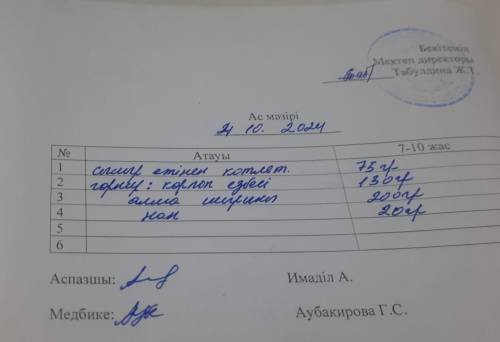 Бекітемін
Мектеп директоры
Табулдина Ж.Т
Ас мәзірі
21 10. 2024
№ Атауы 7-10 жас
1 сиыр етінен котлет. 75гр
2 горнир: картоп езбесі 130гр
3 алма шырыны 200гр
4 нан 20гр
5
6
Аспазшы: Имаділ А.
Медбике: Аубакирова Г.С.